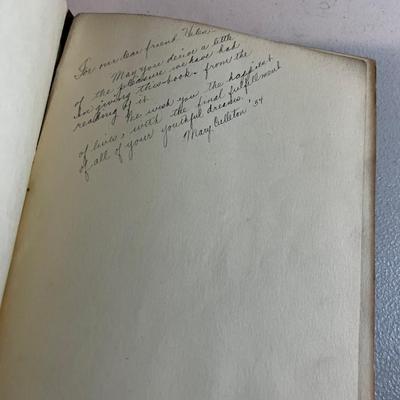 For our dear friend Helen
May you derive a little
of the pleasure we have had
in giving this book - from the
reading of it
We wish you the happiest
of lives, with the final fulfillment
of all of your youthful dreams.
Mary '34